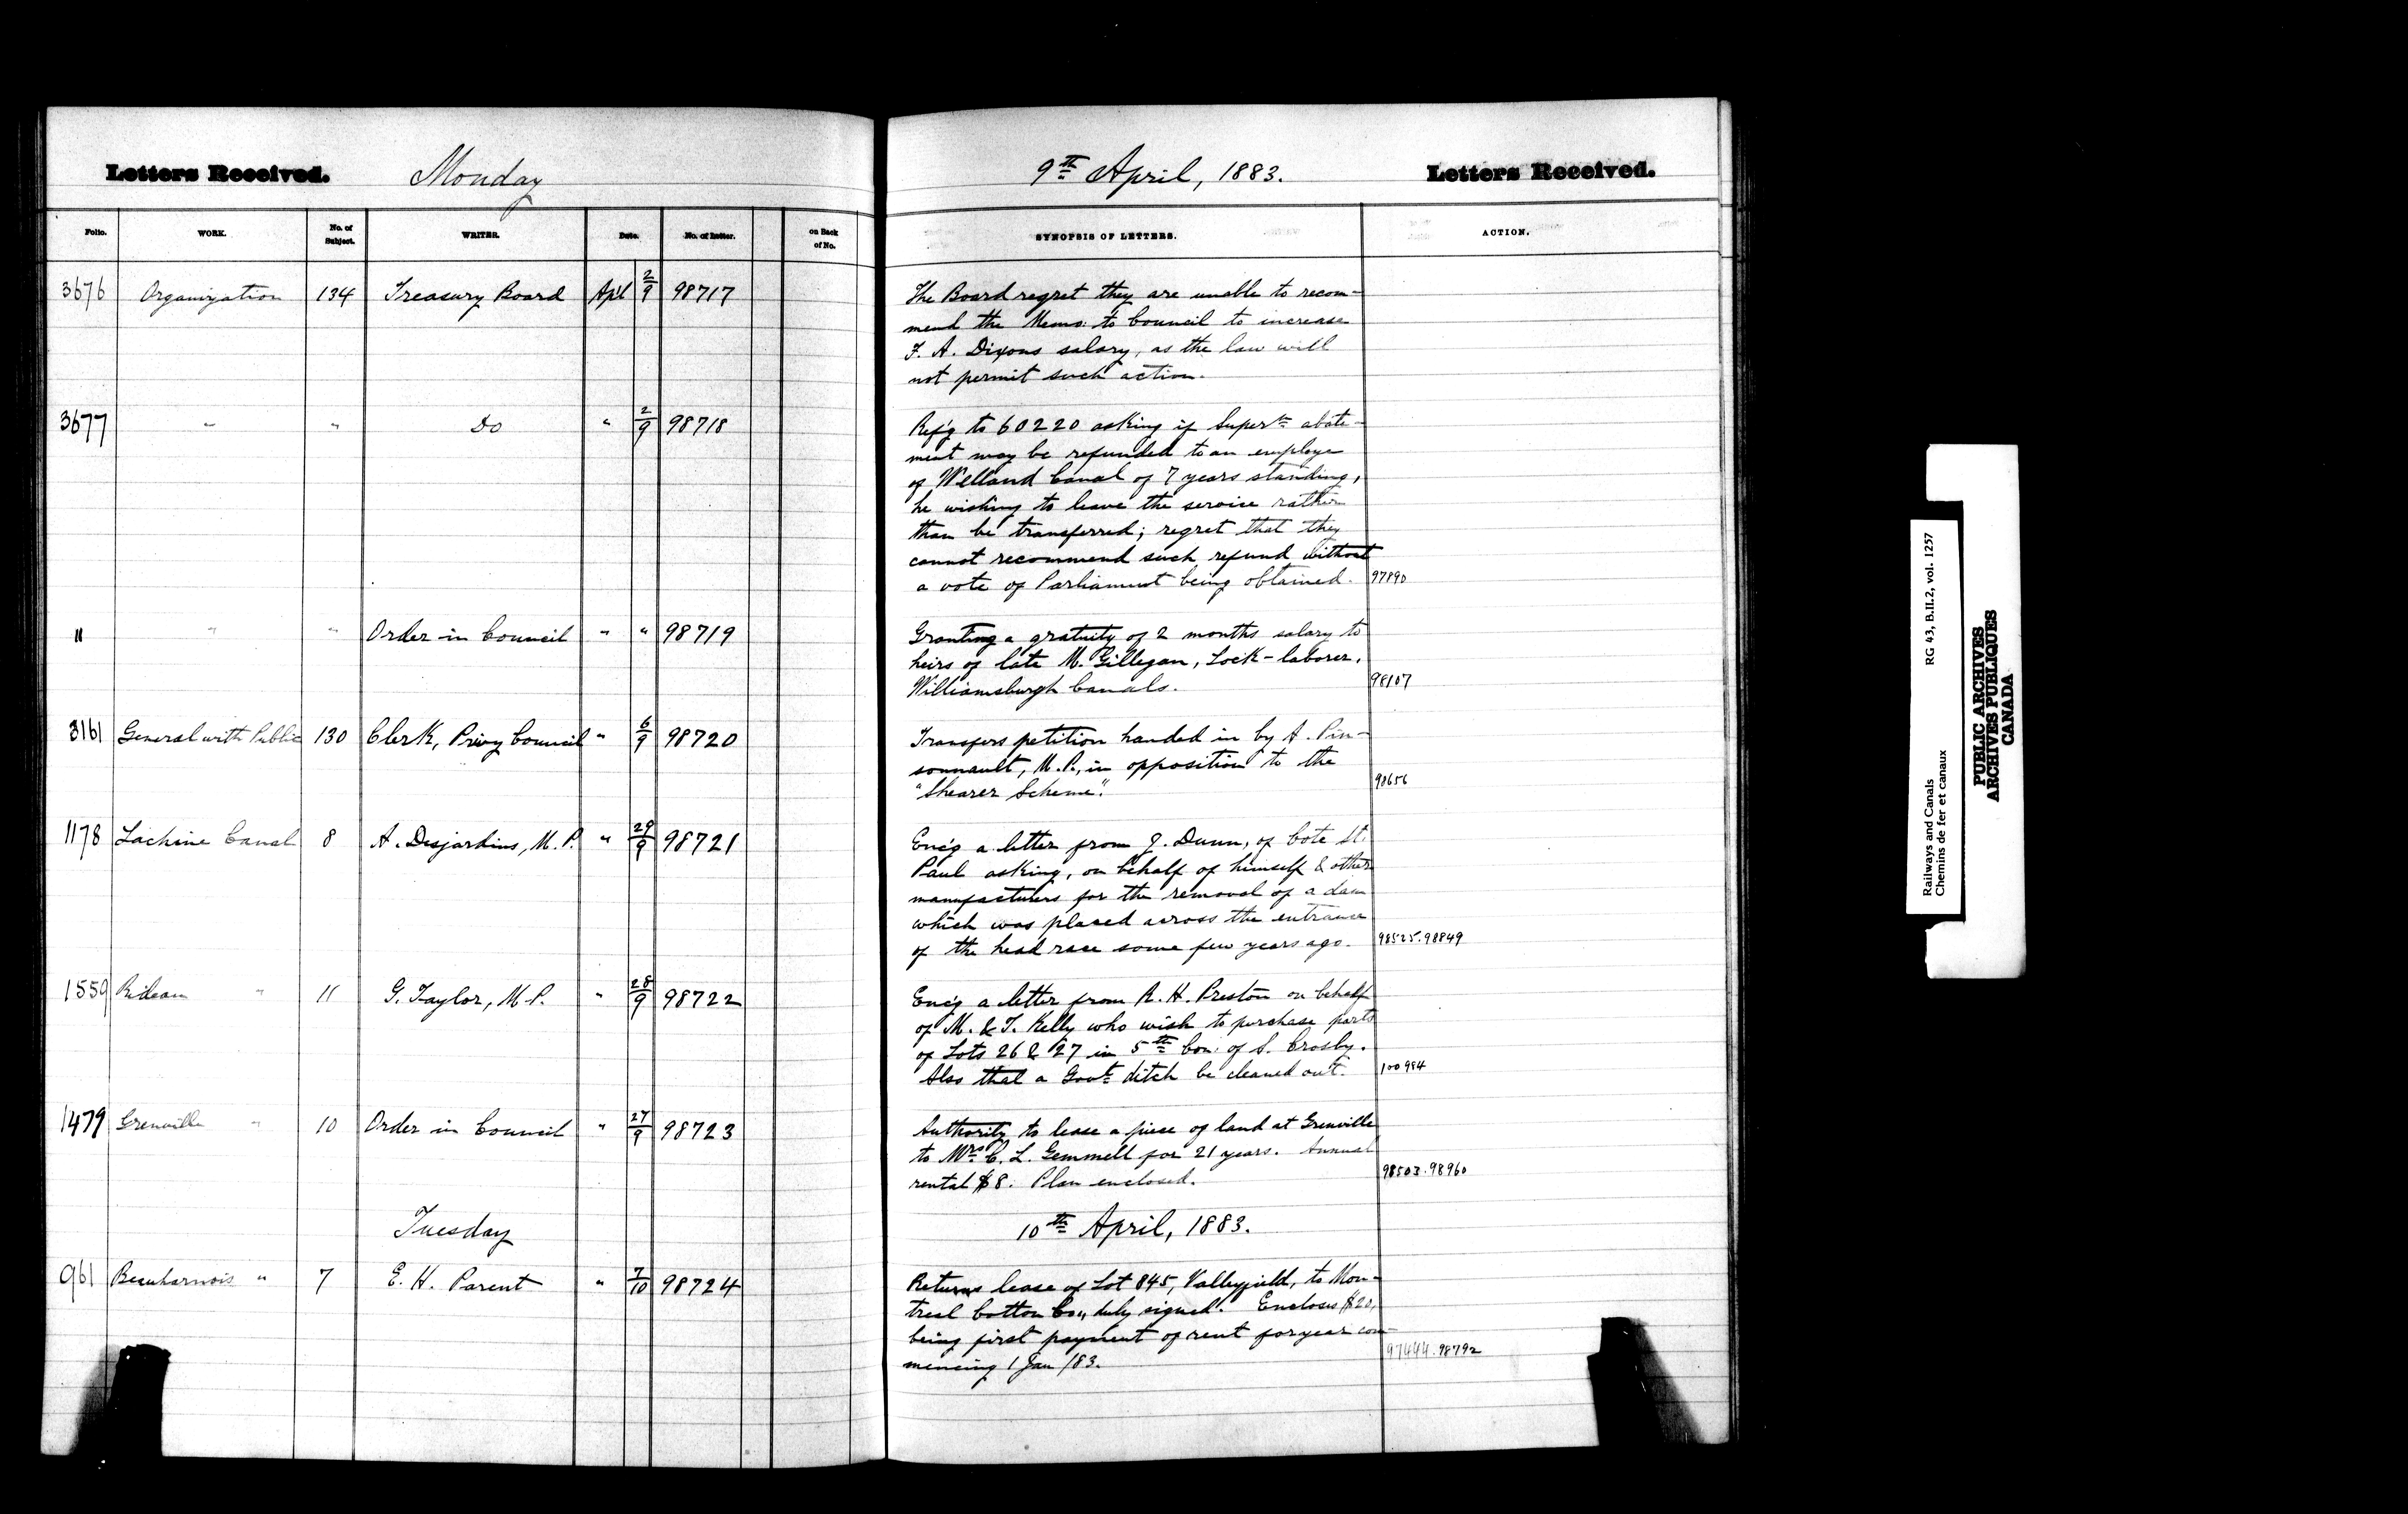 Letters Received. Monday 9th April, 1883. Letters Received.
Folio. WORK. No. of Subject. WRITER. Date. No. of Letter. on Back of No. SYNOPSIS OF LETTERS. ACTION.
3676 Organization 134 Treasury Board Apl 2/9 98717 The Board regret they are unable to recom-
mend the Memo: to Council to increase
F. A. Dixons salary, as the law will
not permit such action.
3677 " " Do " 2/9 98718 Ref'g to 60220 asking if Supert abate-
ment may be refunded to an employe
of Welland Canal of 7 years standing,
he wishing to leave the service rather
than be transferred; regret that they
cannot recommend such refund without
a vote of Parliament being obtained. 97890
" " " Order in Council " " 98719 Granting a gratuity of 2 months salary to
heirs of late M. Gillegan, Lock-laborer,
Williamsburgh Canals. 98107
3161 General with Public 130 Clerk, Privy Council " 6/9 98720 Transfers petition handed in by A. Pin-
sonnault, M.P., in opposition to the
"Shearer Scheme". 98656
1178 Lachine Canal 8 A. Desjardins, M.P. " 29/9 98721 Enc'g a letter from J. Dunn, of Cote St.
Paul asking, on behalf of himself & other
manufacturers for the removal of a dam
which was placed across the entrance
of the head race some few years ago. 98525.98849
1559 Rideau " 11 G. Taylor, M.P. " 28/9 98722 Enc'g a letter from R. H. Preston on behalf
of M. & T. Kelly who wish to purchase parts
of Lots 26 & 27 in 5th Con: of S. Crosby.
Also that a Govt ditch be cleaned out. 100984
1479 Grenville " 10 Order in Council " 27/9 98723 Authority to lease a piece of land at Grenville
to Mrs C. L. Gemmell for 21 years. Annual
rental $8. Plan enclosed. 98503.98960
Tuesday 10th April, 1883.
961 Beauharnois " 7 E. H. Parent " 7/10 98724 Returns lease of Lot 845, Valleyfield, to Mon-
treal Cotton Co., duly signed. Encloses $20,
being first payment of rent for year com-
mencing 1 Jan /83. 97444.98792
Railways and Canals RG 43, B.II.2, vol. 1257
Chemins de fer et canaux
PUBLIC ARCHIVES
ARCHIVES PUBLIQUES
CANADA